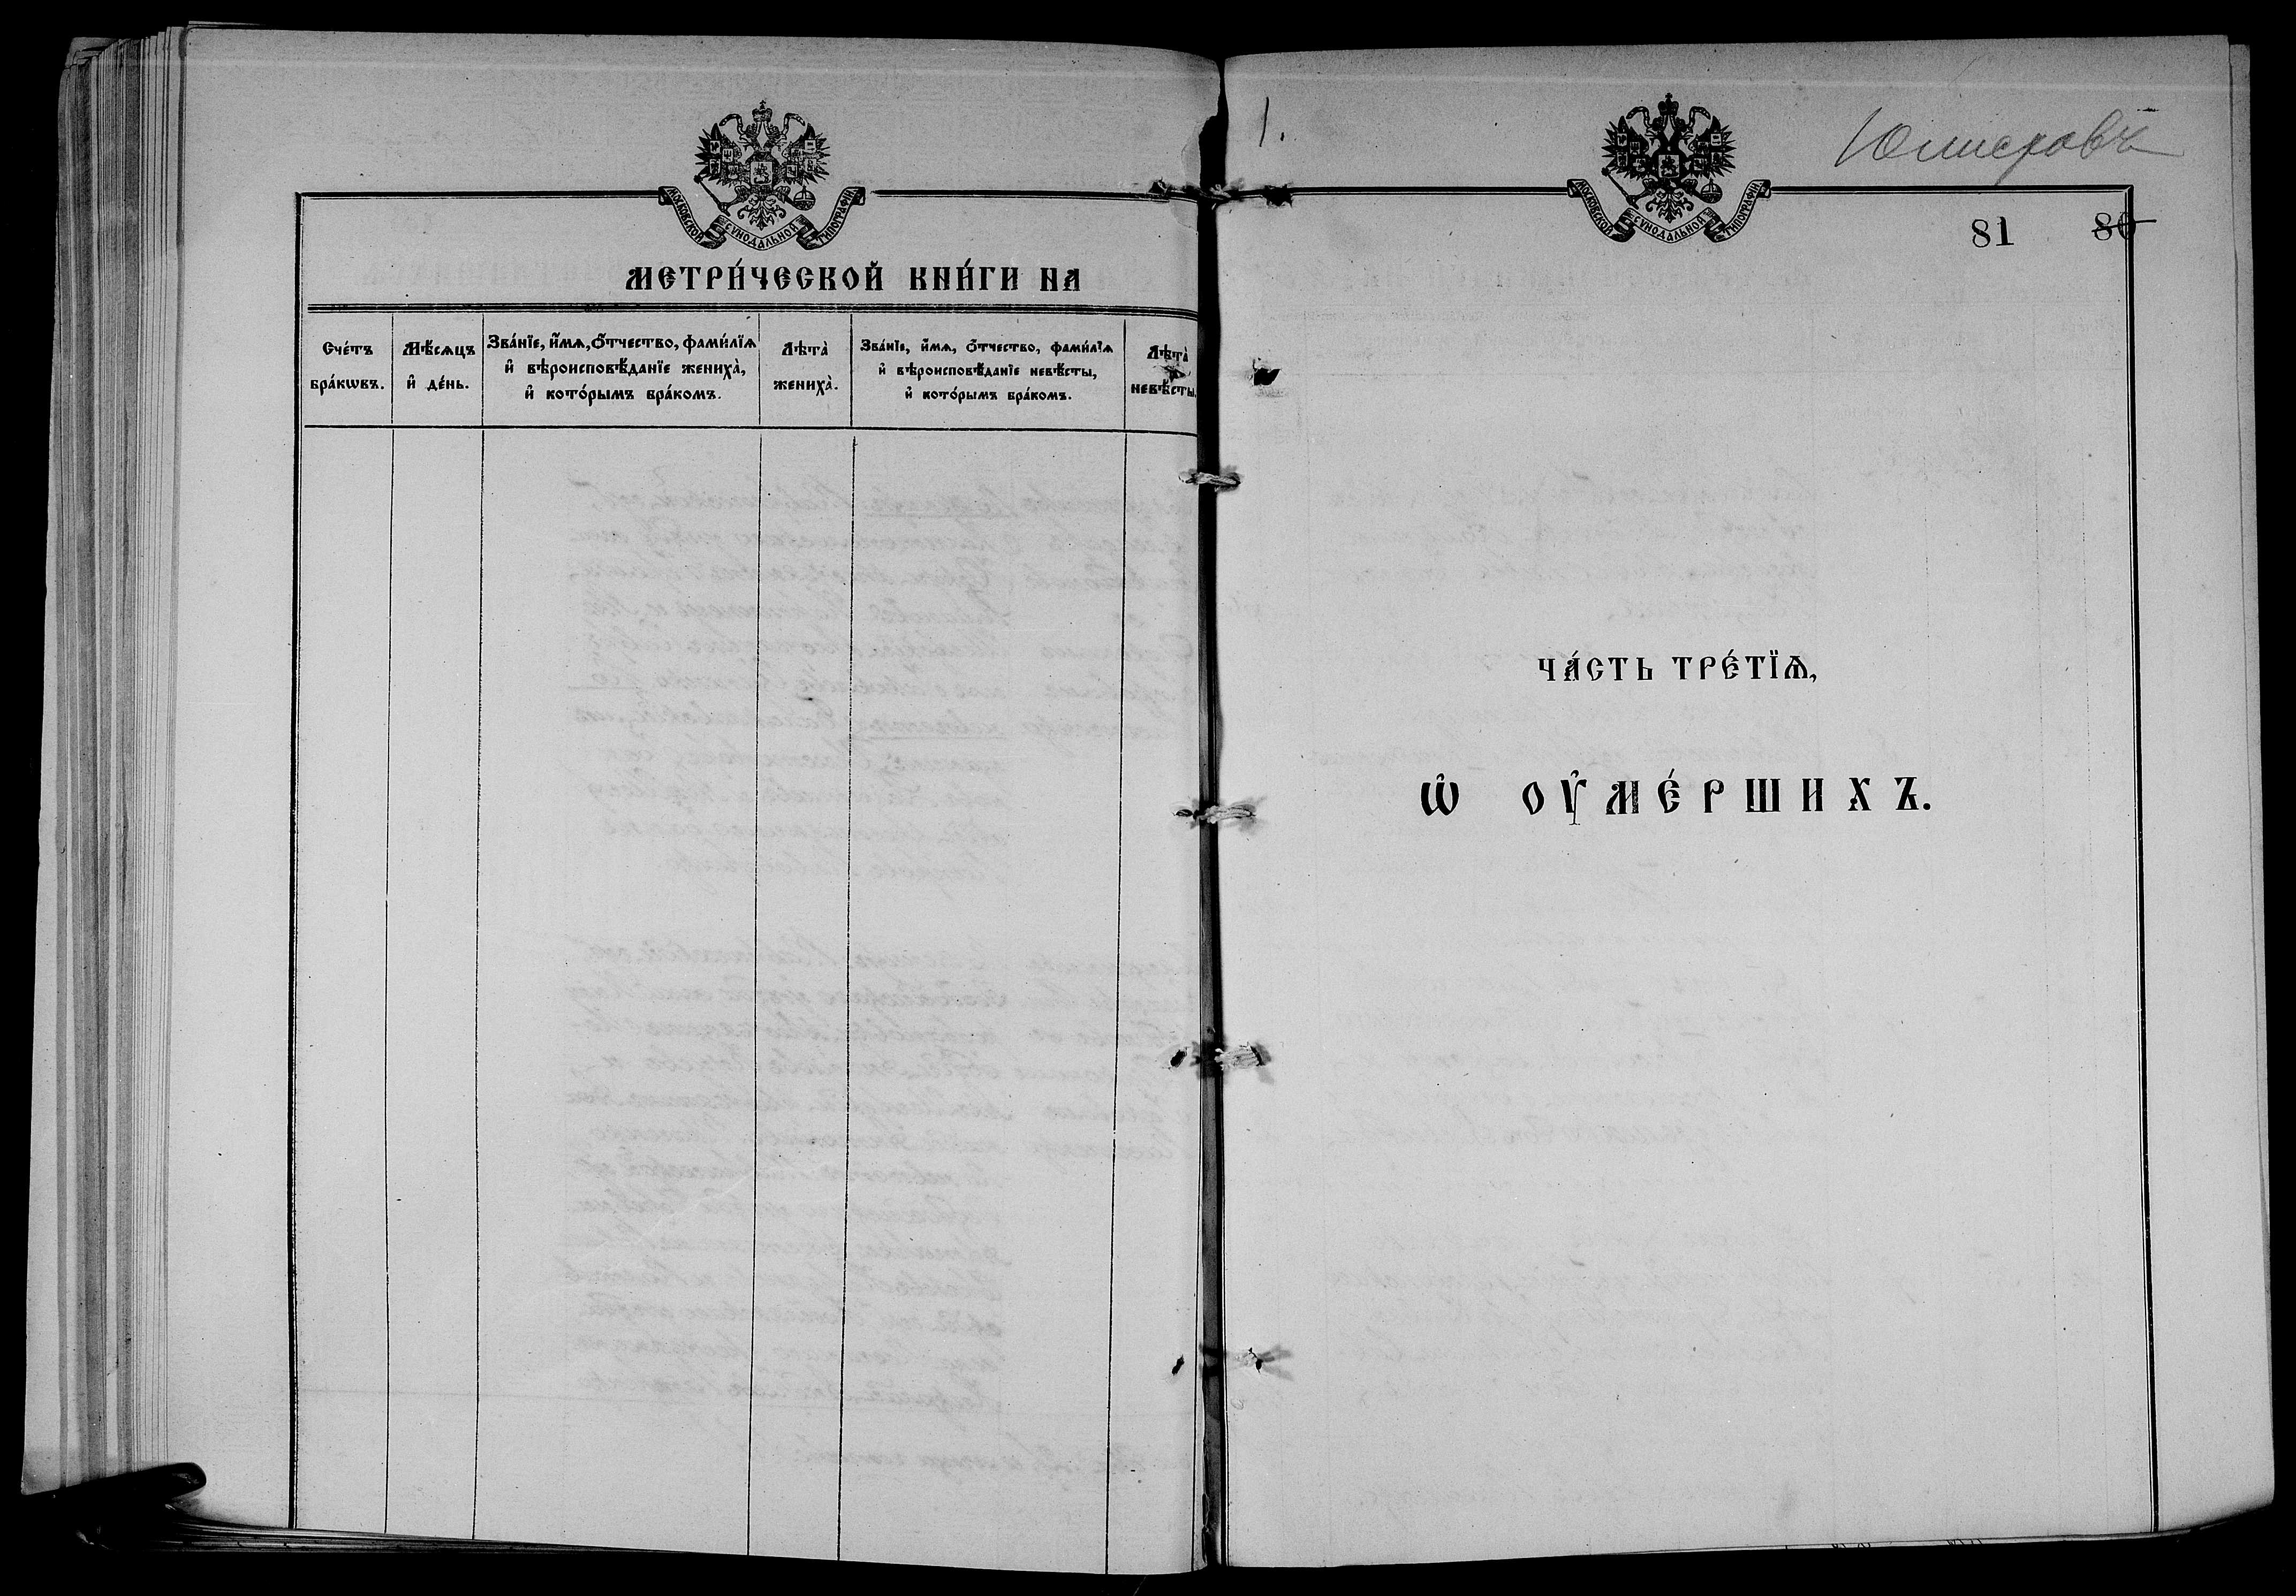 МОСКОВСКОЙ СѴНОДАЛЬНОЙ ТИПОГРАФІИ
МЕТРИ́ЧЕСКОЙ КНИ́ГИ НА
Сче́тъ бра́кѡвъ.
Мѣ́сяцъ и҆ де́нь.
Зва́нїе, и҆́мѧ, ѻ҆́тчество, фами́лїѧ
и҆ вѣроисповѣ́данїе жениха̀,
и҆ кото́рымъ бра́комъ.
Лѣта̀
жениха̀.
Зва́нїе, и҆́мѧ, ѻ҆́тчество, фами́лїѧ
и҆ вѣроисповѣ́данїе невѣ́сты,
и҆ кото́рымъ бра́комъ.
Лѣта̀
невѣ́сты.
1.
МОСКОВСКОЙ СѴНОДАЛЬНОЙ ТИПОГРАФІИ
81 80
ЧА́СТЬ ТРЕ́ТЇѦ,
Ѡ҆ ОУ҆МЕ́РШИХЪ.